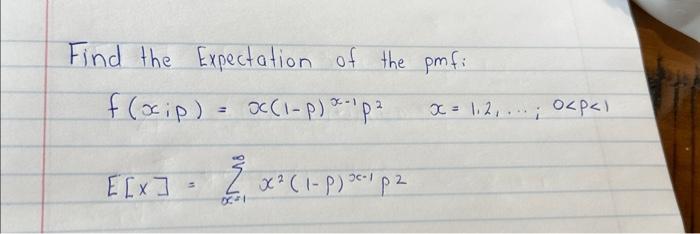 Find the Expectation of the pmf:
f(x;p) = x(1-p)^{x-1}p² x = 1,2,...; 0<p<1
E[X] = \sum_{x=1}^{∞} x²(1-p)^{x-1} p²